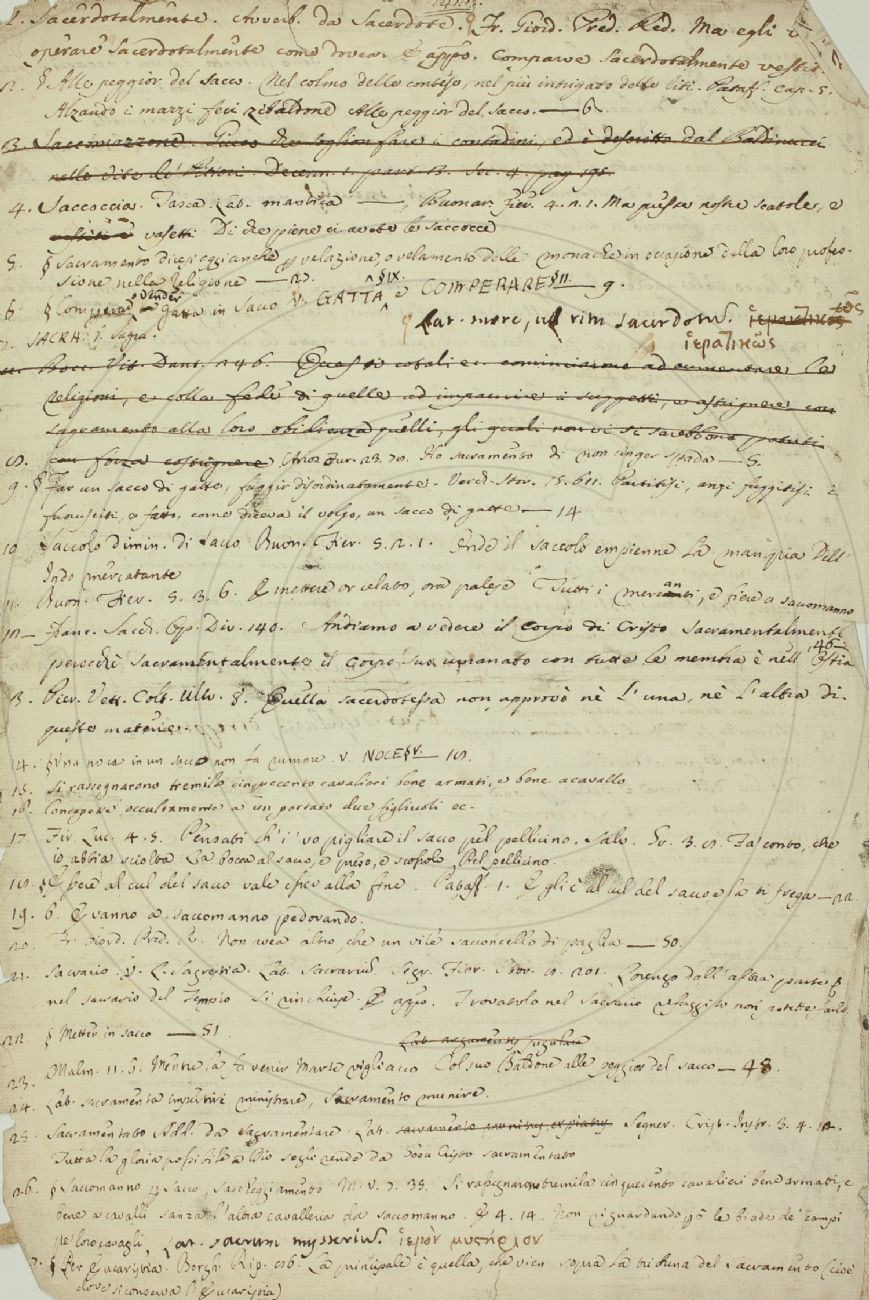 1. Sacerdotalmente. Avverb. da Sacerdote. Fr. Giord. Pred. Red. Ma egli
operare sacerdotalmente come dovea. E appo. Comparve sacerdotalmente vestito
2. § Alle peggior del sacco. Nel colmo delle contese, nel più intrigato delle liti. Pataff. Cap. 5.
Alzando i mazzi feci zibaldone Alle peggior del sacco. — 6
3. Saccomazzone. Giuoco che soglion fare i contadini, ed è descritto dal Baldinucci
nelle vite de' Pittori Decenn. 1. part. 3. Sec. 4. pag. 198.
4. Saccoccia. Tasca Lat. mantica —, Buonar. Fier. 4. 2. 1. Ma queste nostre scatole, e
vasetti Di che piene ci avete le saccocce
5. § Sacramento dicesi oggi anche velazione, o velamento delle monache in occasione della loro profes-
sione nella Religione — 27.
6. § Comperar, vender gatta in sacco V. GATTA §IX. e COMPERARE §II — 9.
§ Lat. more, vel ritu sacerdotum. ἱερατικῶς
ἱερατικῶς
7. SACRA. V. Sagra.
Bocc. Vit. Dant. 246. Questi cotali ec. cominciarono ad aumentare le
religioni, e colla fede di quelle ad impaurire i suggetti, e a strignere con
sagramento alla loro obbidienza quelli, gli quali non vi si sarebbono potuti
con forza costrignere
8. Arios. Fur. 23. 78. Ho sacramento di non cinger spada — 5.
9. § Far un sacco di gatte, fuggir disordinatamente. Verch. Stor. 15. 611. Partitisi, anzi fuggitisi i
fuorusciti, e fatto, come diceva il volgo, un sacco di gatte — 14
10 Saccolo dimin. di Sacco Buon. Fier. 5. 2. 1. Onde il saccolo empienne La manìa Dell'
Indo mercatante
11. Buon. Fier. 5. 3. 6. E mettere or celato, ora palese Tutti i mercanti, e fiere a saccomanno
12 — Franc. Sacch. Op. Div. 140. Andiamo a vedere il Corpo di Cristo sacramentalmente
perocchè sacramentalmente il Corpo suo umanato con tutte le membra è nell' Ostia — 46 —
13. Pier. Vett. Colt. Uliv. 8. Quella sacerdotessa non approvò nè l' una, nè l' altra di
queste maniere.
14. § Una noce in un sacco non fa rumore. V. NOCE §V. — 18.
15. Si rassegnarono tremila cinquecento cavalieri bene armati, e bene a cavallo
16. Concepere occultamente a un portato due figliuoli ec.
17. Fir. Luc. 4. 5. Pensati ch' i' vo pigliare il sacco pel pellicino. Salv. Gr. 3. 2. Fa' conto, che
io abbia sciolta La bocca al sacco, e preso, e scossolo Pel pellicino.
18. § Essere al cul del sacco vale esser alla fine. Pataff. 1. Egli è al cul del sacco e la ti frega — 22
19. 6. E vanno a saccomanno pedovando.
20. Fr. Giord. Pred. R. Non avea altro, che un vile sacconcello di paglia — 50.
21. Sacrario. V. L. Sagrestia. Lat. Sacrarium. Segr. Fior. Stor. 8. 201. Lorenzo dall' altra parte
nel sacrario del tempio si rinchiuse. E appo. Trovatolo nel Sacrario rifuggito non potette salv.
22. § Metter in sacco — 51.
23. Malm. 11. 5. Mentre la fa venir Marte vigliacco Col suo Baldone alle peggior del sacco — 48.
24. Lat. sacramenta impertire, ministrare, Sacramento munire.
25. Sacramentato Add. da sacramentare. Lat. Segner. Crist. Instr. 3. 4. 12.
Tutta la gloria possibile a Dio segli rende da Gesu Cristo sacramentato
26. § Saccomanno per Sacco, Saccheggiamento M. V. 7. 38. Si rassegnarono tremila cinquecento cavalieri bene armati, e
bene a cavalli sanza l' altra cavalleria da saccomanno. E 4. 14. Non riguardando però le biade de' campi
pe' loro cavagli, Lat. sacrum mysterium. ἱερὸν μυστήριον
§ Per Eucaristia. Borgh. Rip. La principale è quella, che vien sopra la tribuna del Sacramento (cioè
dove si conserva l' Eucaristia)